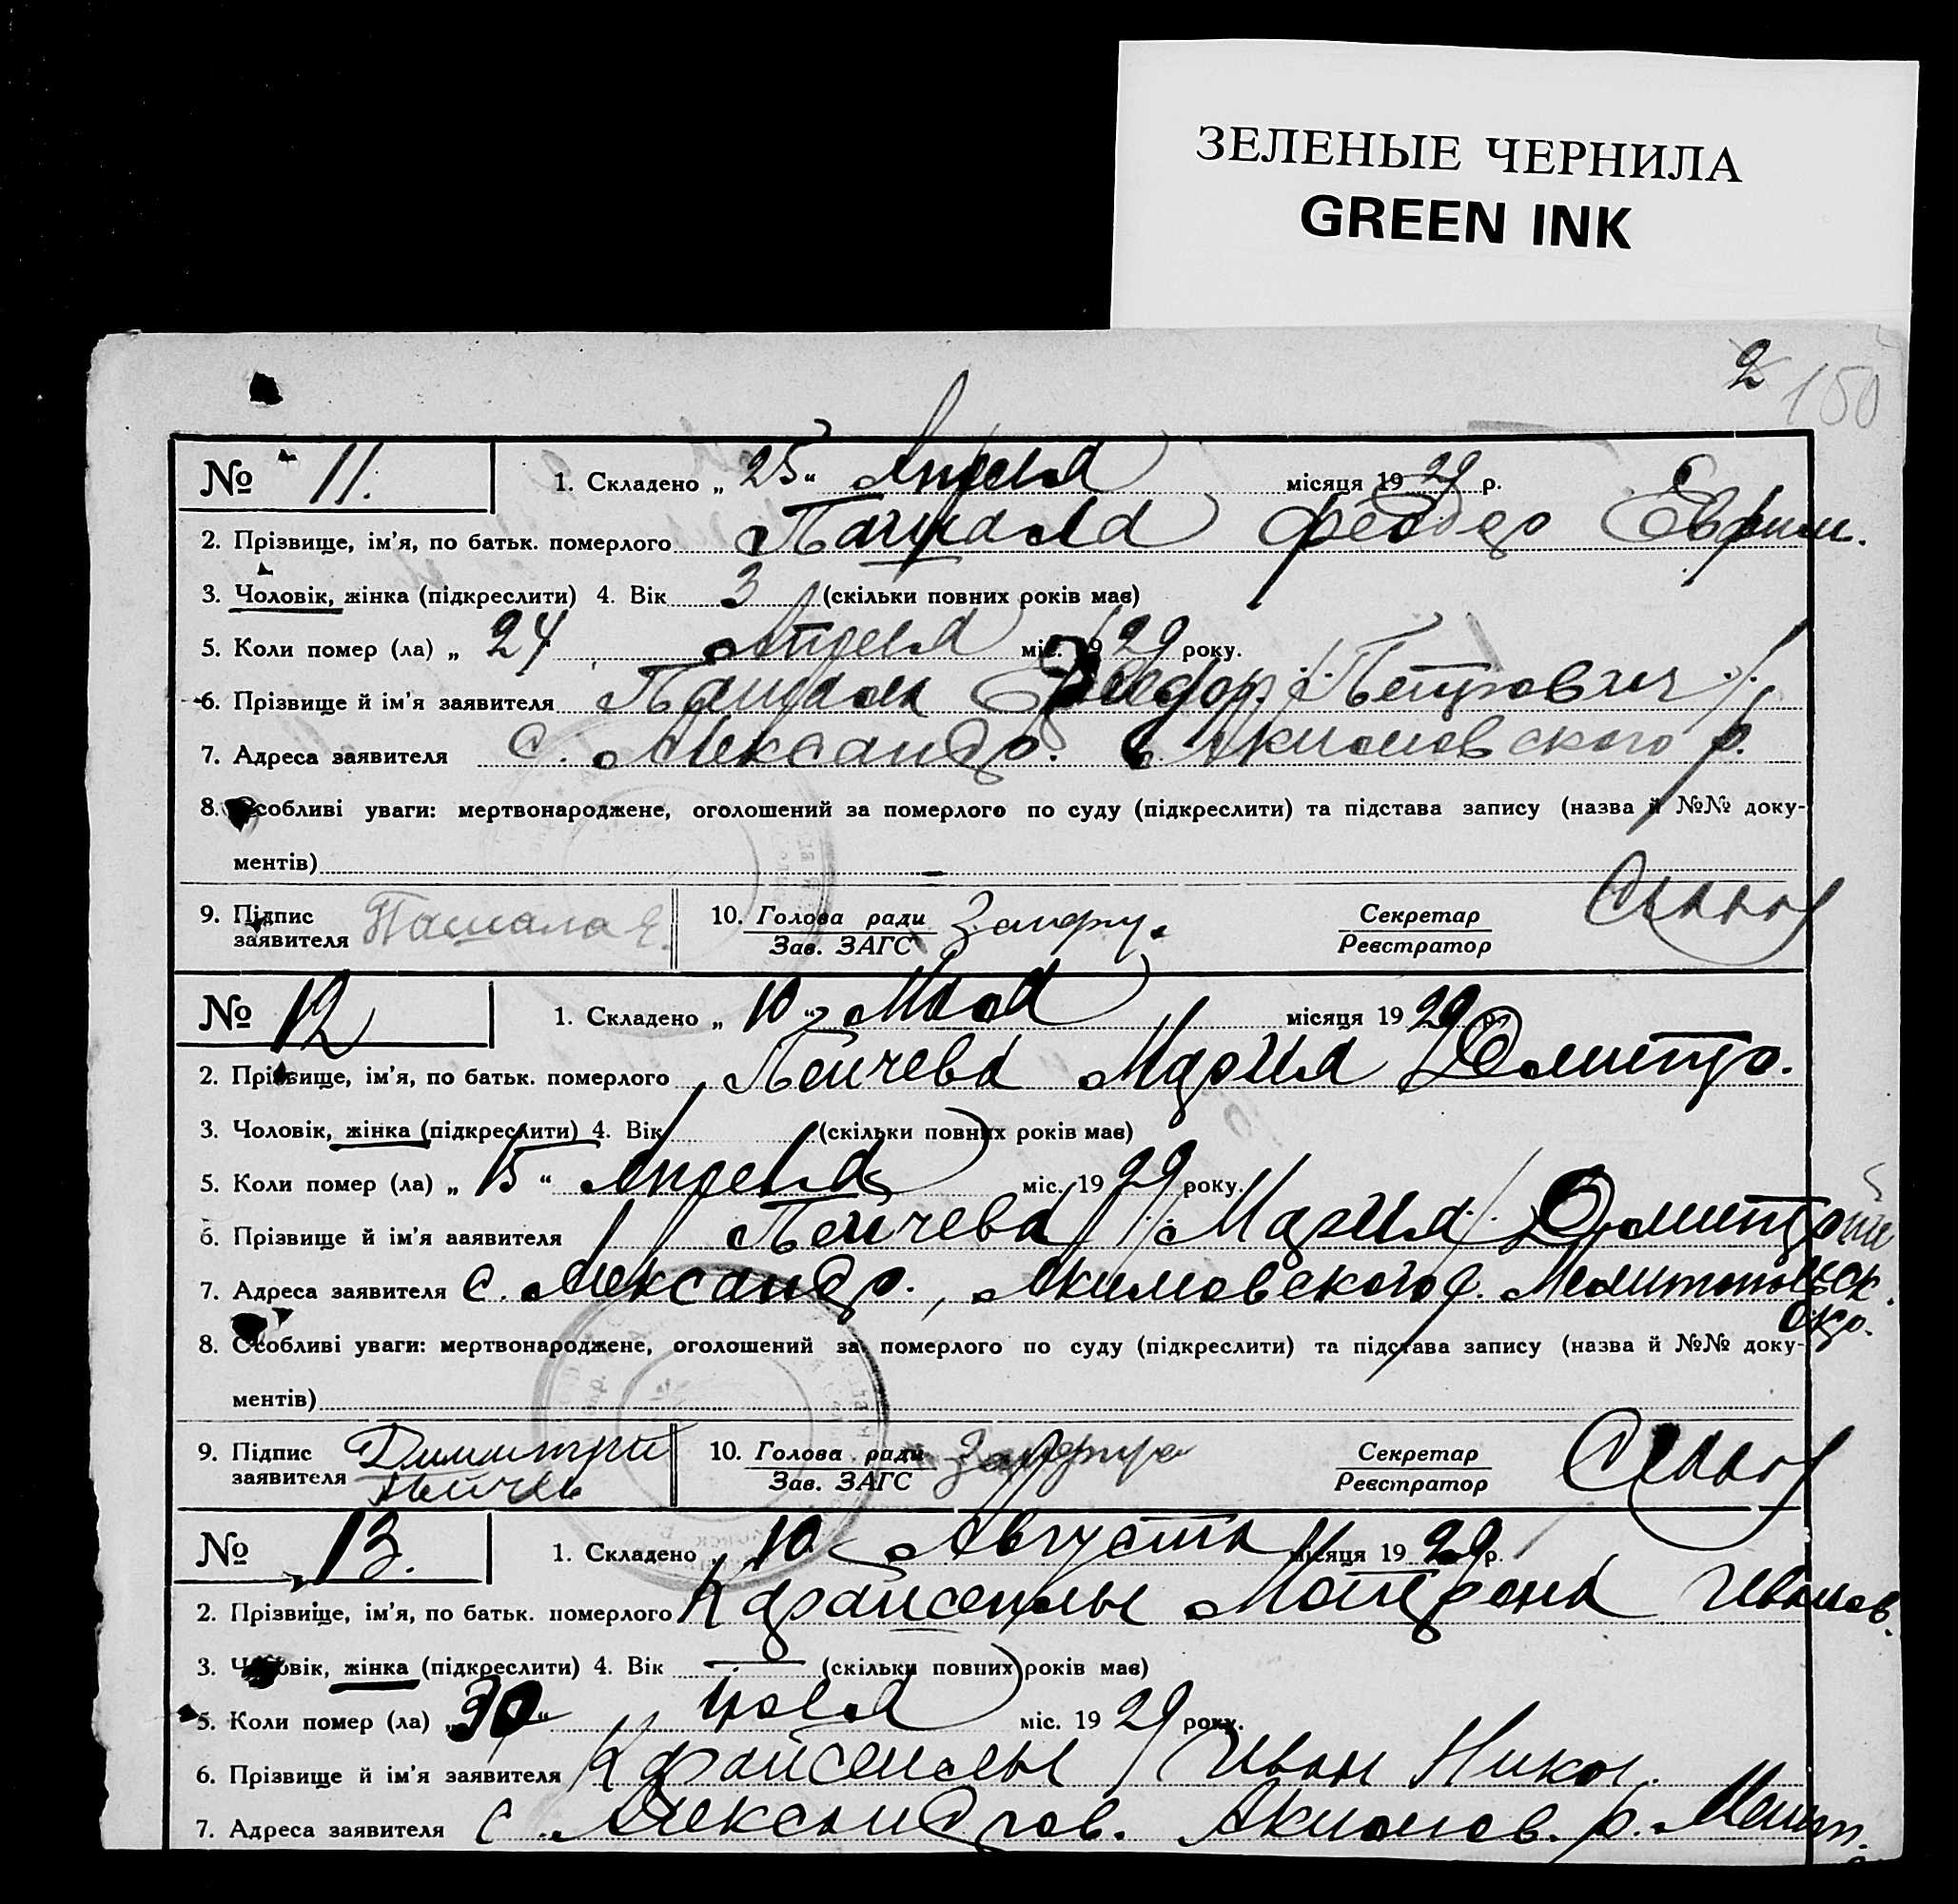 ЗЕЛЕНЫЕ ЧЕРНИЛА
GREEN INK
2 150
№ 11. 1. Складено „25“ Апреля місяця 1929 р.
2. Прізвище, ім'я, по батьк. померлого Пашала Феодор Ефрим.
3. Чоловік, жінка (підкреслити) 4. Вік 3 (скільки повних років має)
5. Коли помер (ла) „24 Апреля міс. 1929 року.
6. Прізвище й ім'я заявителя Пашала Петрович
7. Адреса заявителя с. Александр. Акимовского р.
8. Особливі уваги: мертвонароджене, оголошений за померлого по суду (підкреслити) та підстава запису (назва й №№ доку-
ментів)
9. Підпис заявителя Пашала Е. 10. Голова ради Секретар
Зав. ЗАГС Реєстратор
№ 12 1. Складено „10“ Мая місяця 1929 р.
2. Прізвище, ім'я, по батьк. померлого Пейчева Мария Дмитр.
3. Чоловік, жінка (підкреслити) 4. Вік (скільки повних років має)
5. Коли помер (ла) „15“ Апреля міс. 1929 року.
6. Прізвище й ім'я ааявителя Пейчева Мария
7. Адреса заявителя с. Александр., Акимовского р. Мелитопольск.
Окр.
8. Особливі уваги: мертвонароджене, оголошений за померлого по суду (підкреслити) та підстава запису (назва й №№ доку-
ментів)
9. Підпис заявителя Димитрий Пейчев 10. Голова ради Секретар
Зав. ЗАГС Реєстратор
№ 13. 1. Складено „10 Августа місяця 1929 р.
2. Прізвище, ім'я, по батьк. померлого Матрена Иванов.
3. Чоловік, жінка (підкреслити) 4. Вік (скільки повних років має)
5. Коли помер (ла) „30“ Июля міс. 1929 року.
6. Прізвище й ім'я заявителя Иван Никол.
7. Адреса заявителя с. Александров. Акимов. р. Мелит.